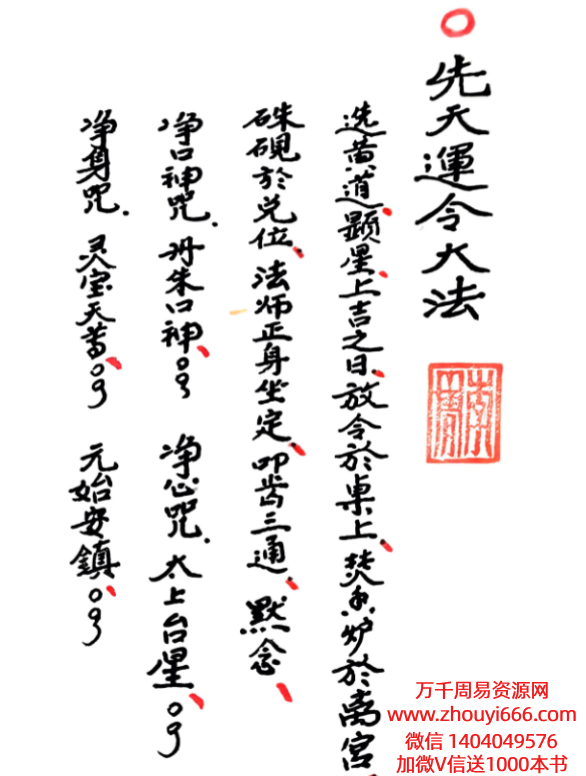 先天運令大法
选黄道顕星上吉之日放令於桌上焚香炉於离宫
硃砚於兑位法师正身坐定叩齿三通默念
净口神咒.丹朱口神。净心咒.太上台星。
净身咒.灵宝天尊。元始安鎮。
万千周易资源网
www.zhouyi666.com
微信 1404049576
加微V信送1000本书